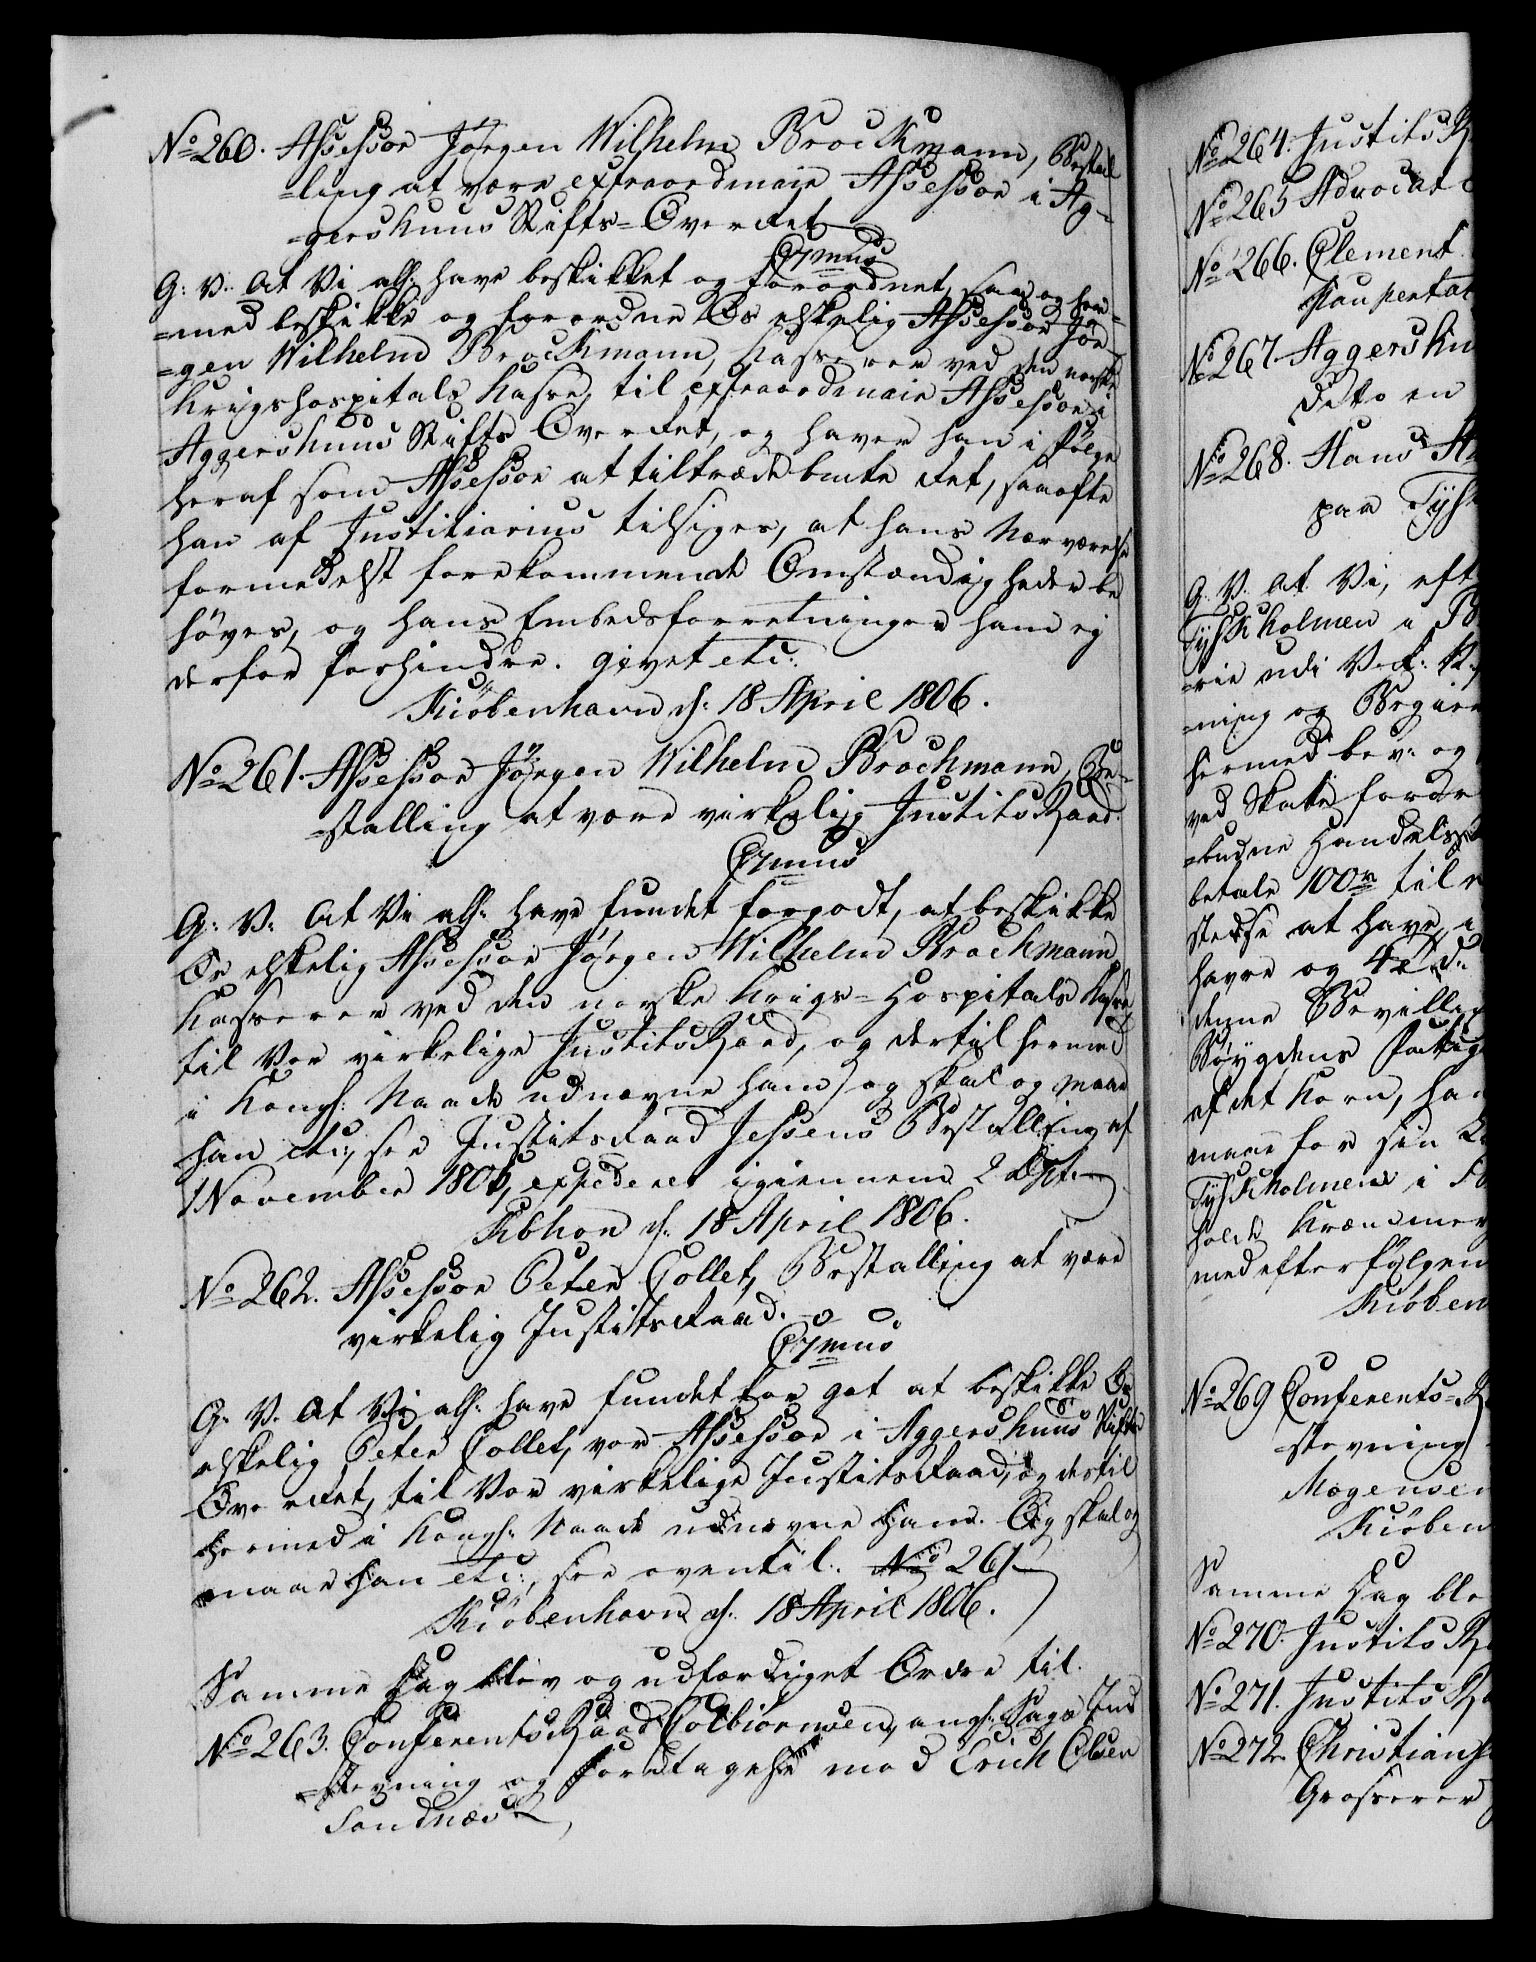 No 260. Assessor Jørgen Wilhelm Brochmann, Bestal
=ling at være extraordinair Assessor i Ag=
=gershuus Stifts=Overret
C7mus
G: V: At Vi alh: have beskikket og forordnet, saa og her=
=med beskikke og forordne Os elskelig Assessor Jør
=gen Wilhelm Brochmann, Kasserer ved den norske
Krigshospitals Kasse, til extraordinair Assessor i
Aggershuus Stifts Overret, og haver han i følge
heraf som Assessor at tiltræde bmte Ret, saaofte
han af Justitiarius tilsiges, at hans Nærværelse
formedelst forekommende Omstændigheder be
høves, og hans Embedsforretninger ham ej
derfor forhindre. givet etc:
Kiöbenhavn d: 18 April 1806.
No 261. Assessor Jørgen Wilhelm Brochmann, Be=
=stalling at være virkelig JustitsRaad.
C7mus
G: V: At Vi alh: have fundet forgodt, at beskikke
Os elskelig Assessor Jørgen Wilhelm Brochmann
Kasserer ved den norske Krigs=Hospitals Kasse
til Vor virkelige JustitsRaad, og dertil hermed
i Kongl: Naade udnævne ham) og skal og maae
han etc:, see Justitsraad Jessens Bestalling af
1 November 1805, expederet igiennem 2 Dpt:
Kbhvn d: 18 April 1806.
No 262. Assessor Peter Collet, Bestalling at være
virkelig Justitsraad.
C7mus
G: V: At Vi alh: have fundet for got at beskikke Os
elskelig Peter Collet, vor Assessor i Aggershuus Stifts
Overret, til Vor virkelige Justitsraad, og dertil
hermed i Kongl: Naade udnævne ham. Og skal og
maae han etc:, see oventil. No 261.
Kiöbenhavn d: 18 April 1806.
Samme Dag blev og udfærdiget Ordre til
No 263. ConferentsRaad Colbiørnsen, angl: Sags Ind
=stevning og Foretagelse mod Erich Olsen
Sandnæs
No 264. Justits R
No 265 Advocat
No 266. Clement
No 267. Aggershu
Dito en
No 268. Hans
paa Tysk
G: V: At Vi, eft
Tyskholmen i
=rie udi
=ning og
hermed bev: og
ved Skatte
=budne Handels
betale 100 rd til
stedse at have, i
havre og 4
denne Bevilling
Bøygdens
af det Korn, han
maae for sin
Tyskholmen i
holde Kræmmer
medefterfølgen
Kiöben
No 269 Conferents=R
=stevning
Mogensen
Kiöben
Samme Dag ble
No 270. Justits R
No 271. Justits R
No 272. Christian
Grosserer